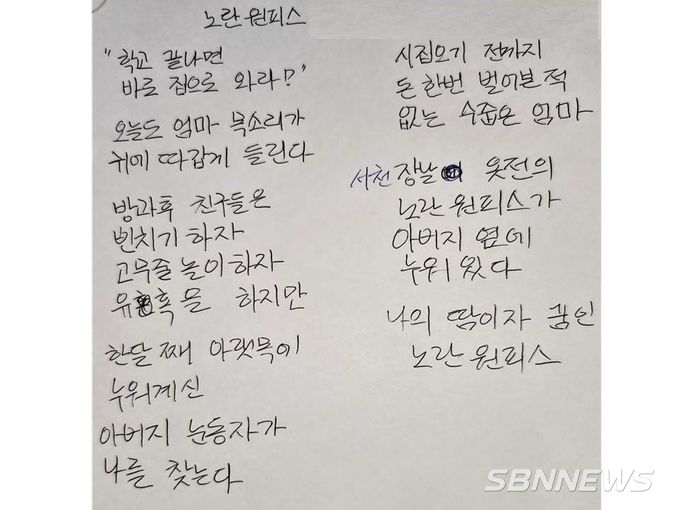 노란 원피스
"학교 끝나면
바로 집으로 와라!"
오늘도 엄마 목소리가
귀에 따갑게 들린다
방과후 친구들은
삔치기 하자
고무줄 놀이 하자
유혹을 하지만
한달 째 아랫목에
누워계신
아버지 눈동자가
나를 찾는다
시집오기 전까지
돈 한번 벌어본 적
없는 수줍은 엄마
서천 장날 옷전의
노란 원피스가
아버지 옆에
누워 있다
나의 땀이자 꿈인
노란 원피스
SBNNEWS